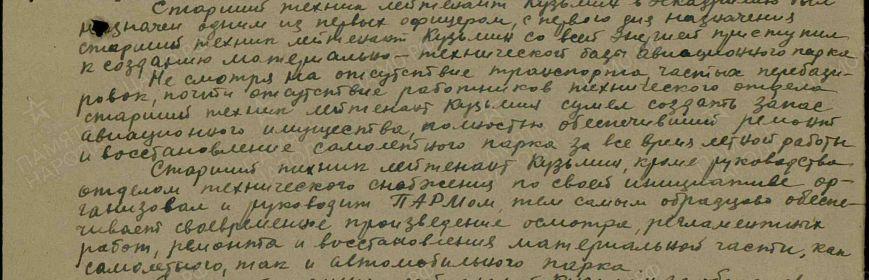 Старший техник лейтенант Кузьмин в эскадрилью был
назначен одним из первых офицером, с первого дня назначения
старший техник лейтенант Кузьмин со всей энергией приступил
к созданию материально-технической базы авиационного парка.
Не смотря на отсутствие транспорта, частых перебази-
ровок, почти отсутствие работников технического отдела
старший техник лейтенант Кузьмин сумел создать запас
авиационного имущества, полностью обеспечивший ремонт
и восстановление самолетного парка за все время летной работы
Старший техник лейтенант Кузьмин, кроме руководства
отделом технического снабжения по своей инициативе ор-
ганизовал и руководит ПАРМом, тем самым образцово обеспе-
чивает своевременное произведение осмотра, регламентных
работ, ремонта и восстановления материальной части, как
самолетного, так и автомобильного парка